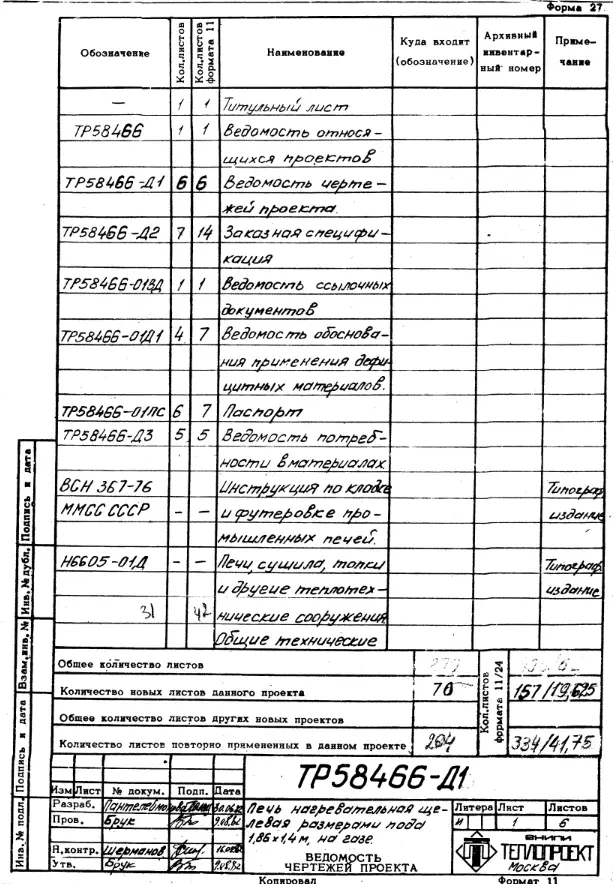 Форма 27.
Обозначение
Кол.листов
Кол.листов формата 11
Наименование
Куда входит (обозначение)
Архивный инвентарный номер
Приме-чание
— 1 1 Титульный лист
ТР58466 1 1 Ведомость относя-
щихся проектов
ТР58466-Д1 6 6 Ведомость черте-
жей проекта.
ТР58466-Д2 7 14 Заказная специфи-
кация
ТР58466-01ВД 1 1 Ведомость ссылочных
документов
ТР58466-01Д1 4 7 Ведомость обоснова-
ния применения дефи-
цитных материалов.
ТР58466-01ПС 6 7 Паспорт
ТР58466-Д3 5 5 Ведомость потреб-
ности в материалах
ВСН 367-76 Инструкция по кладке Типограф.
ММСС СССР — — и футеровке про- издание
мышленных печей.
Н6605-01Д - — Печи, сушила, топки Типограф.
и другие теплотех- издание
31 42 нические сооружения
Общие технические
Общее количество листов
Количество новых листов данного проекта 70
Общее количество листов других новых проектов
Количество листов повторно примененных в данном проекте 264
Кол.листов формата 11/24
157/19,625
334/41,75
ТР58466-Д1
Изм Лист № докум. Подп. Дата
Разраб.
Пров. Брук
Н.контр. Шерманов
Утв. Брук
Печь нагревательная ще-
левая размерами пода
1,86х1,4м, на газе.
ВЕДОМОСТЬ
ЧЕРТЕЖЕЙ ПРОЕКТА
Литера Лист Листов
И 1 6
ВНИПИ
ТЕПЛОПРОЕКТ
Москва
Копировал
Формат 11
Инв.№ подл.
Подпись и дата
Взам.инв.№
Инв.№ дубл.
Подпись и дата